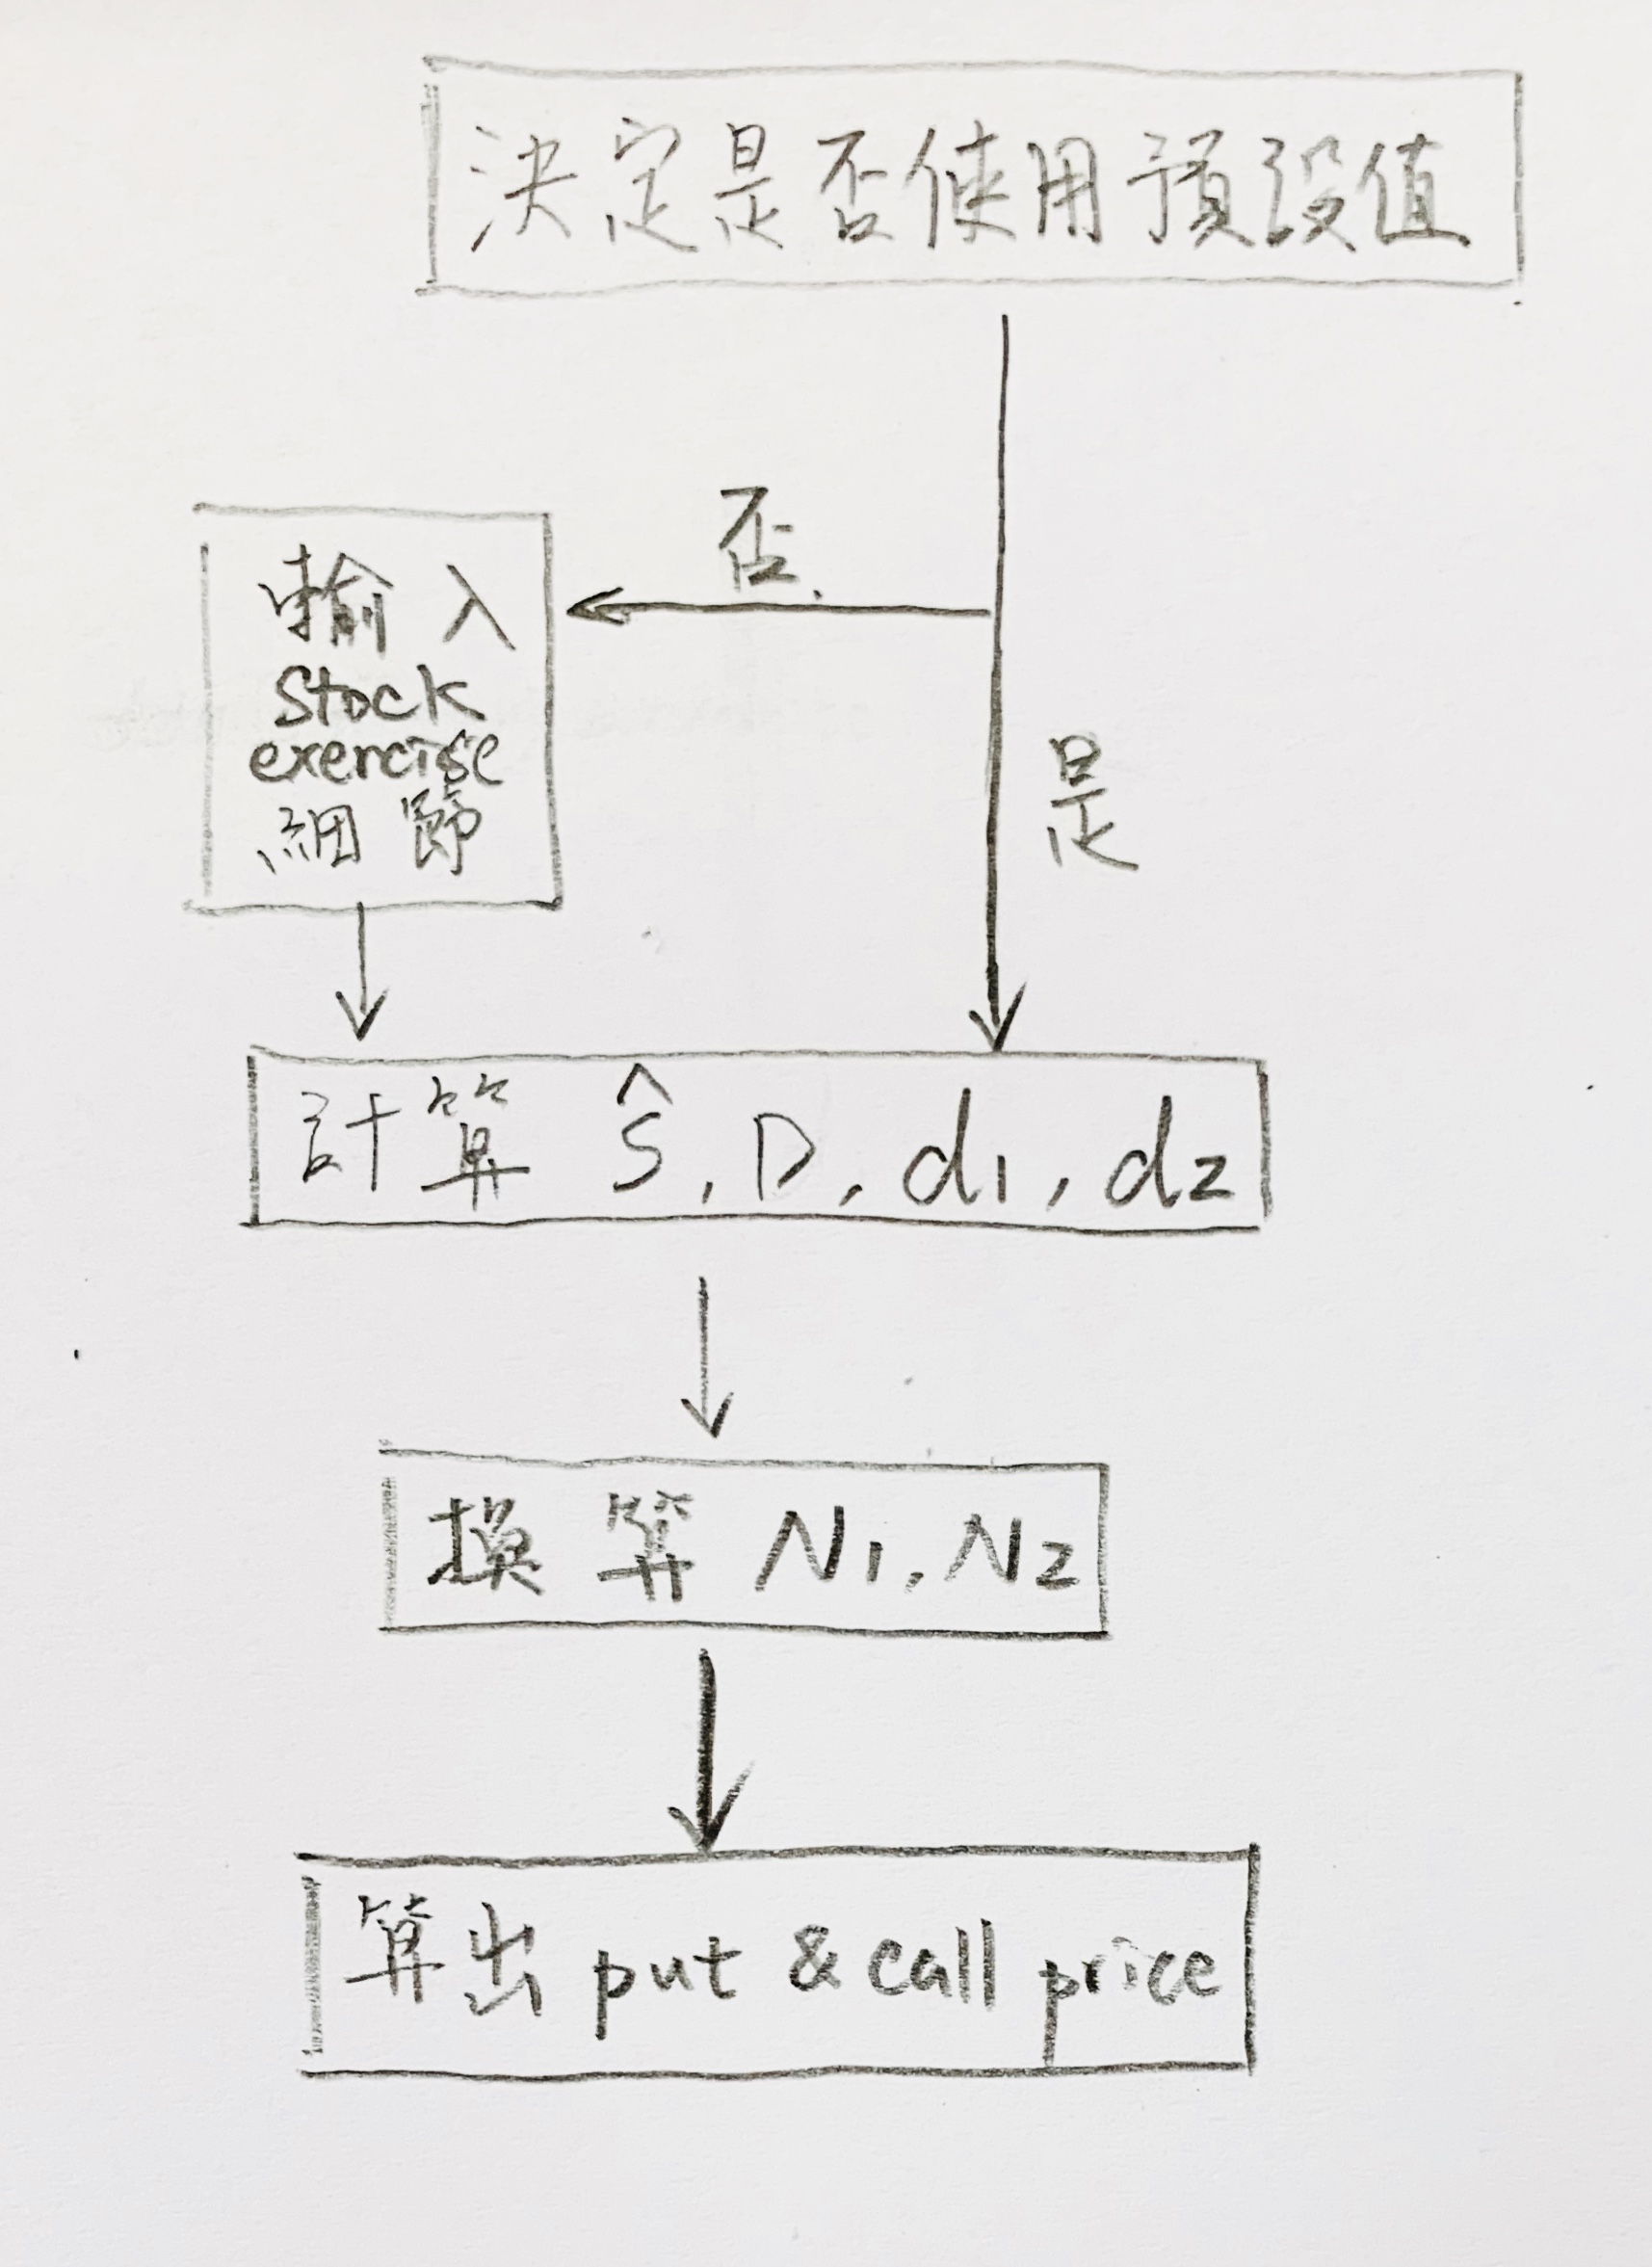 決定是否使用預設值
否
輸入
Stock
exercise
細節
是
計算 Ŝ, D, d1, d2
換算 N1, N2
算出 put & call price